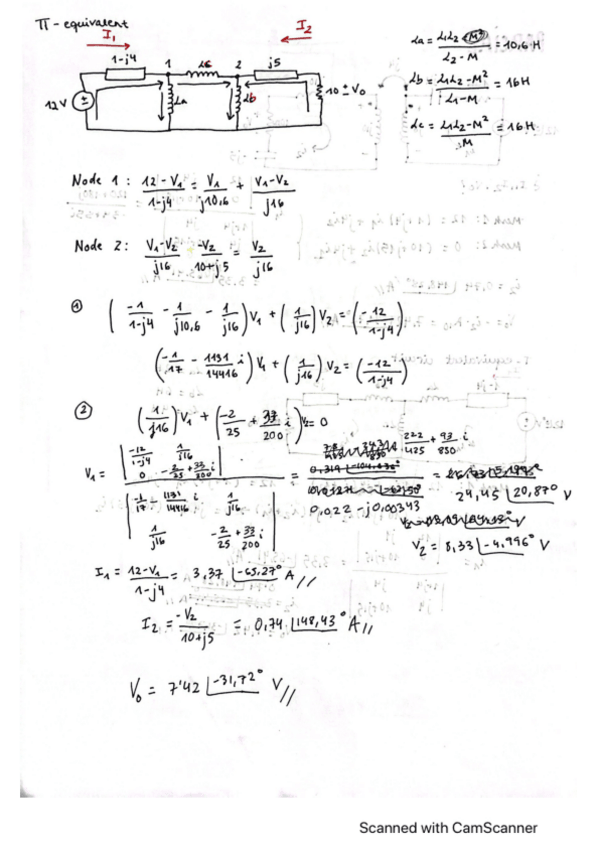 Π - equivalent
I1
I2
La = L1L2 - M² / L2 - M = 10,6 H
1-j4
1
Lc
2
j5
12V
La
Lb
10 ± V0
Lb = L1L2 - M² / L1 - M = 16H
Lc = L1L2 - M² / M = 16H
Node 1: 12 - V1 / 1-j4 = V1 / j10,6 + V1-V2 / j16
Node 2: V1-V2 / j16 - V2 / 10+j5 = V2 / j16
① ( -1 / 1-j4 - 1 / j10,6 - 1 / j16 ) V1 + ( 1 / j16 ) V2 = ( -12 / 1-j4 )
( -1 / 17 - 1131 / 14416 i ) V1 + ( 1 / j16 ) V2 = ( -12 / 1-j4 )
② ( 1 / j16 ) V1 + ( -2 / 25 + 33 / 200 i ) V2 = 0
V1 = | -12 / 1-j4 1 / j16 |
| 0 -2 / 25 + 33 / 200 i |
| -1 / 17 - 1131 / 14416 i 1 / j16 |
| 1 / j16 -2 / 25 + 33 / 200 i |
= 222 / 425 + 93 / 850 i
0,022 - j0,00343
= 24,45 |20,87° V
V2 = 8,33 |-4,996° V
I1 = 12-V1 / 1-j4 = 3,37 |-65,27° A //
I2 = -V2 / 10+j5 = 0,74 |148,43° A //
V0 = 7'42 |-31,72° V //
Scanned with CamScanner